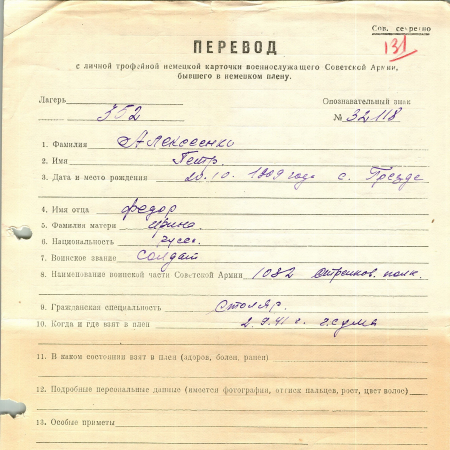 Сов. секретно
131
ПЕРЕВОД
с личной трофейной немецкой карточки военнослужащего Советской Армии,
бывшего в немецком плену.
Лагерь Опознавательный знак
352 № 32118
1. Фамилия Алексеенко
2. Имя Петр.
3. Дата и место рождения 20.10. 1909 года с.
4. Имя отца Федор
5. Фамилия матери Ирина.
6. Национальность русс.
7. Воинское звание солдат
8. Наименование воинской части Советской Армии 1082 Стрелков. полк.
9. Гражданская специальность Столяр.
10. Когда и где взят в плен 2.9.41 г.
11. В каком состоянии взят в плен (здоров, болен, ранен)
12. Подробные персональные данные (имеется фотография, оттиск пальцев, рост, цвет волос)
13. Особые приметы